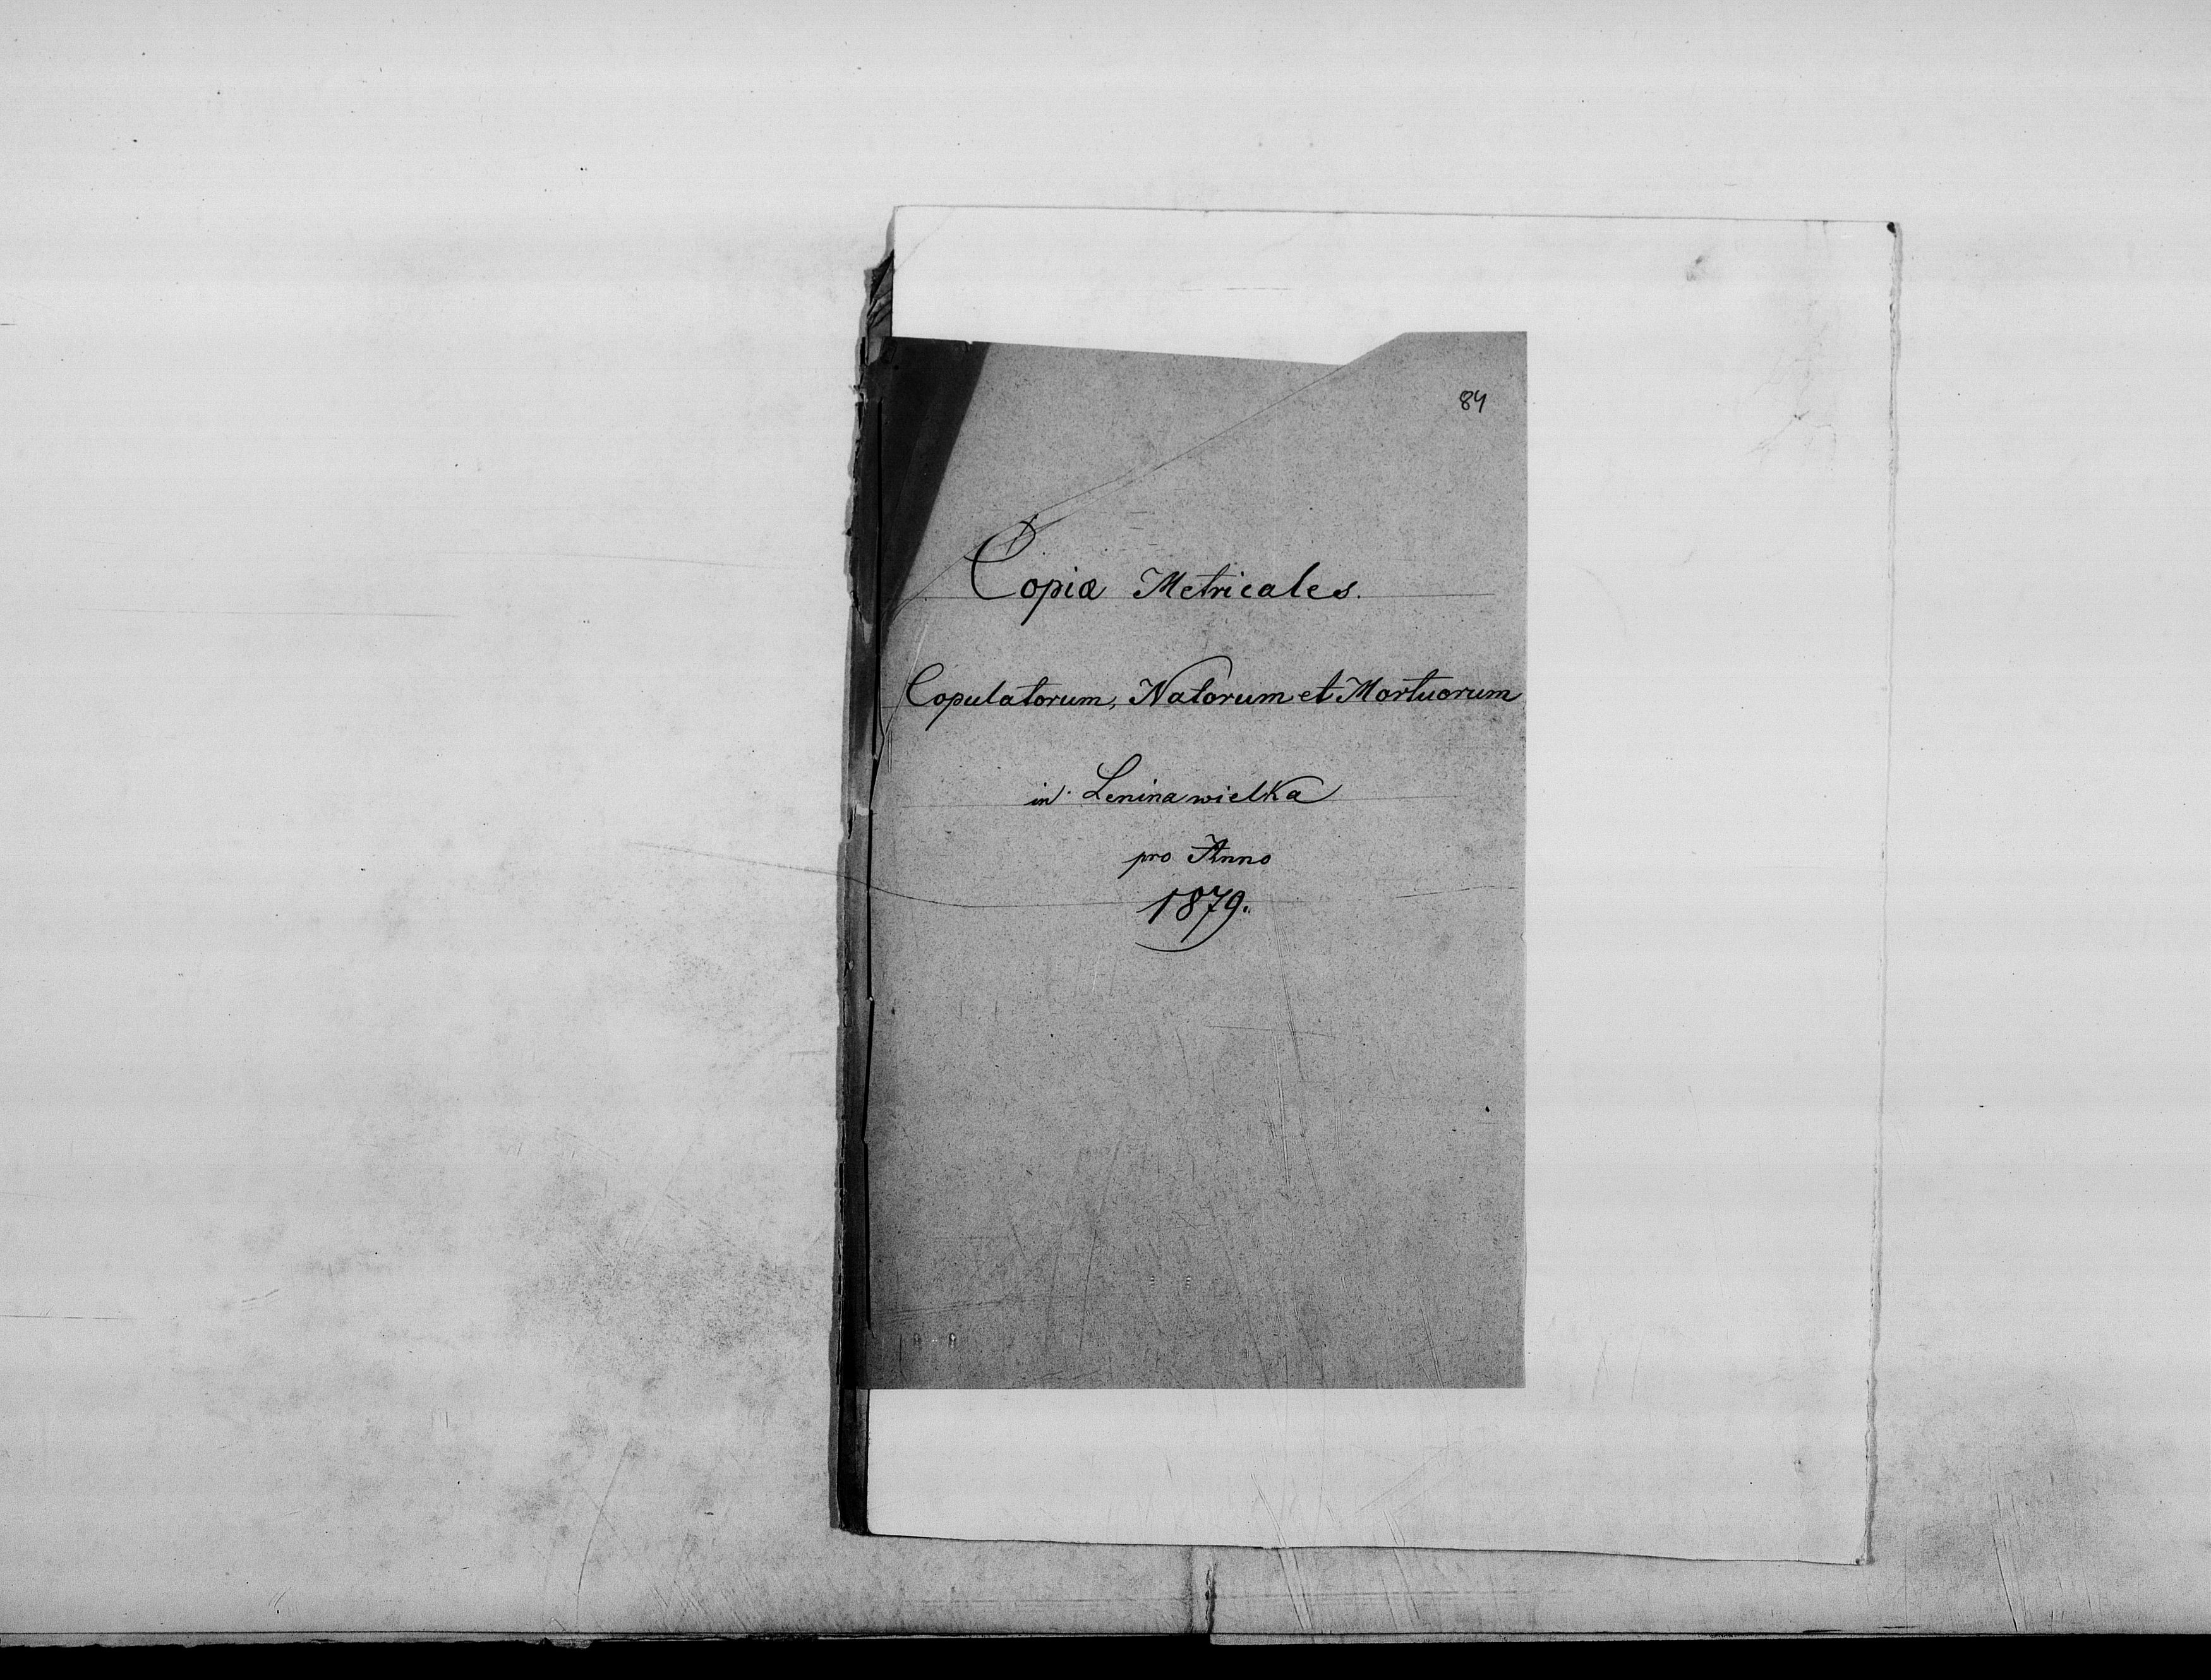 84
Copiæ Metricales.
Copulatorum, Natorum et Mortuorum
in Lenina wielka
pro Anno
1879.